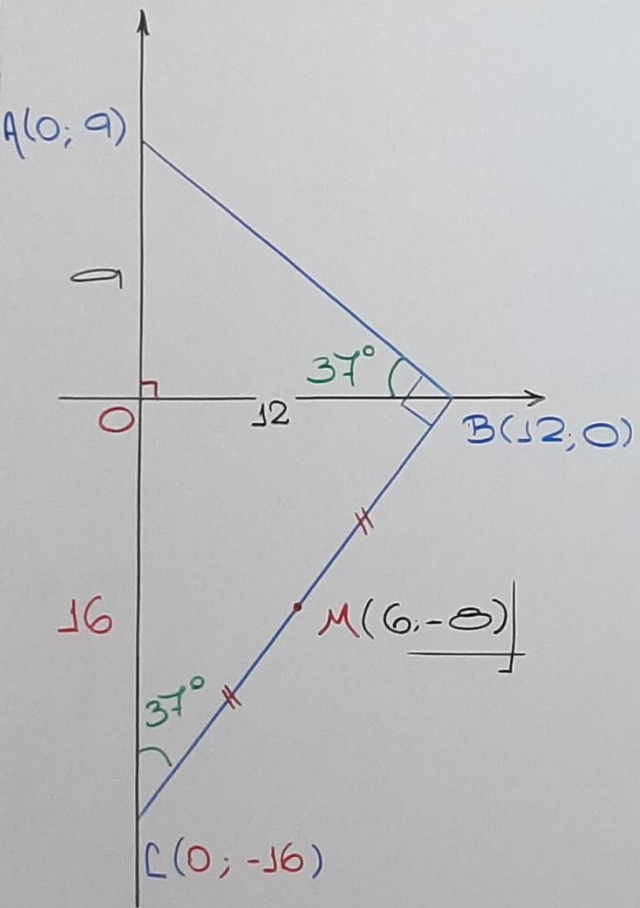 A(0; 9)
9
37°
O
12
B(12; 0)
16
M(6; -8)
37°
C(0; -16)